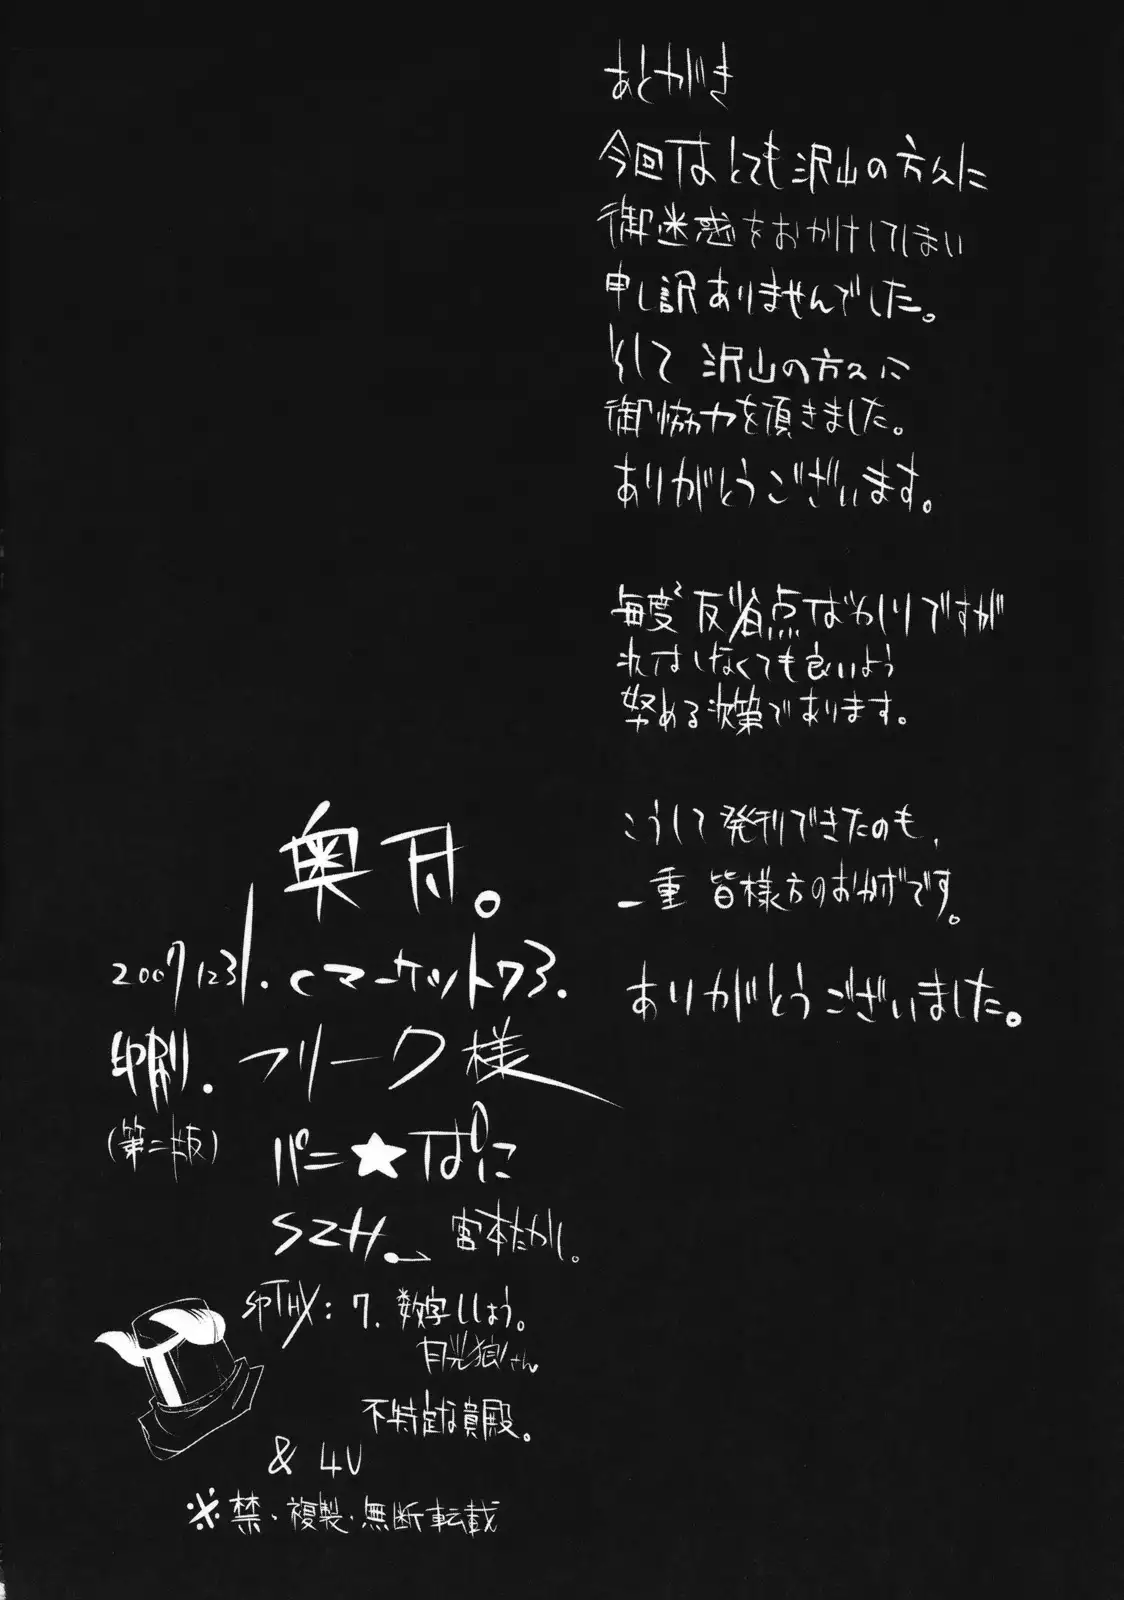 あとがき
今回はとても沢山の方々に
御迷惑をおかけしてしまい
申し訳ありませんでした。
そして沢山の方々に
御協力を頂きました。
ありがとうございます。
毎度²反省点ばかりですが
少しでも良いよう
努める次第であります。
こうして発刊できたのも、
一重皆様方のおかげです。
ありがとうございました。
奥付。
20071231.Cマーケット73.
印刷.フリーク様
(第二版)
パニ★ぱに
SZH. 宮本たかし。
SPTHX:7.数字ししょう。
月光狼さん
不特定な貴殿。
& 4U
※禁・複製・無断転載